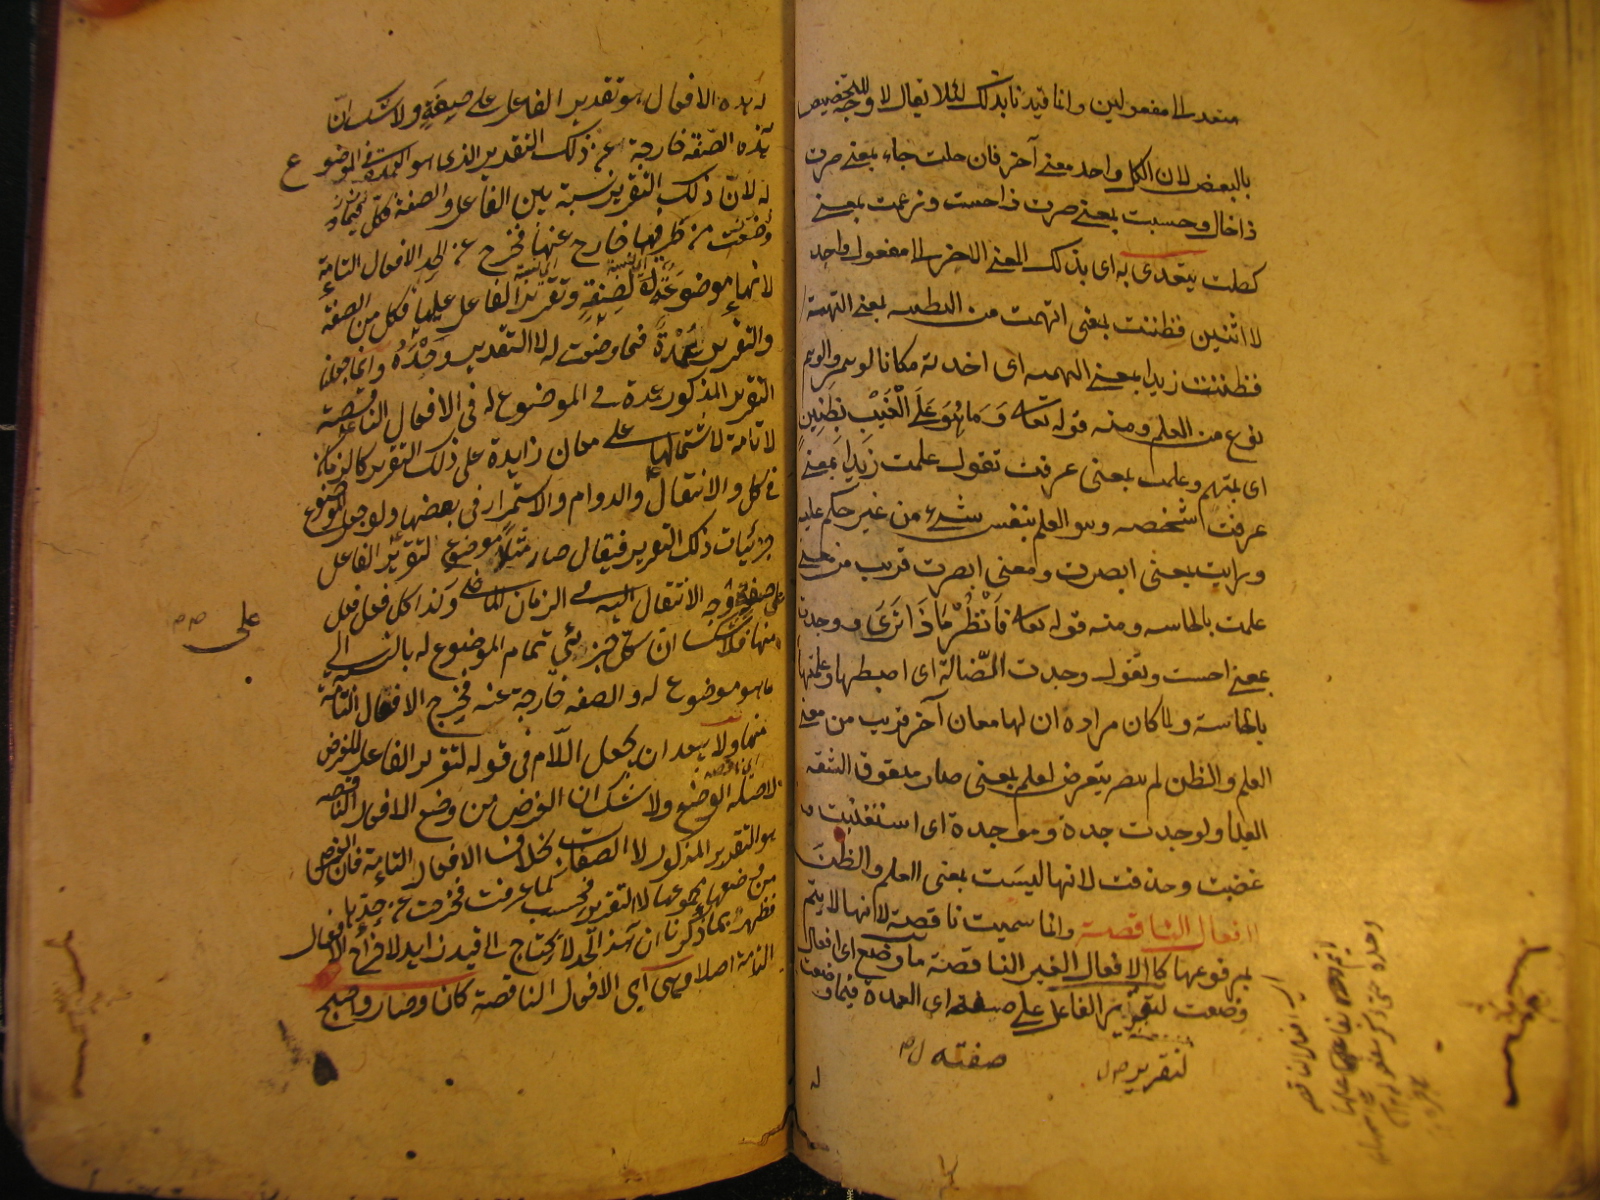 متعد الى مفعولين وانما قيدنا بذلك لئلا يقال لا وجه للتخصيص
بالبعض لان لكل واحد معنى آخر فان خلت جاء بمعنى صرت
ذا خال وحسبت بمعنى صرت ذا حسب وزعمت بمعنى
كفلت يتعدى به اى بذلك المعنى الآخر الى مفعول واحد
لا اثنين فظننت بمعنى اتهمت من الظنة بمعنى التهمة
فظننت زيدا بمعنى اتهمته اى اخذته مكانا لوهم والوهم
نوع من العلم ومنه قوله تعالى وَمَا هُوَ عَلَى الْغَيْبِ بِظَنِينٍ
اى بمتهم وعلمت بمعنى عرفت تقول علمت زيدا بمعنى
عرفت شخصه وهو العلم بنفس شىء من غير حكم عليه
ورايت بمعنى ابصرت ومعنى ابصرت قريب من معنى
علمت بالحاسه ومنه قوله تعالى فَانْظُرْ مَاذَا تَرَى ووجدت
بمعنى اصبت وتقول وجدت الضّالة اى اصبتها وعلمتها
بالحاسة ولما كان مراده ان لها معان آخر قريب من معنى
العلم والظن لم يتعرض لعلم بمعنى صار مشقوق الشفة
العليا ولوجدت جدة وموجدة اى استغنيت و
غضبت وحذفت لانها ليست بمعنى العلم والظن
الافعال الناقصة وانما سميت ناقصة لانها لا يتم
بمرفوعها كالافعال الغير الناقصة ما وضع اى افعال
وضعت لتقرير الفاعل على صفة اى العمدة فيما وضعت
لتقرير ص ل
صفته ل ص
له
له هذه الافعال هو تقدير الفاعل على صفة ولا شك انّ
هذه الصّفة خارجة عن ذلك التقدير الذى هو العمدة فى الموضوع
له لانّ ذلك التقرير نسبة بين الفاعل والصفة فكل
من طرفيها خارج عنها فخرج عن الحد الافعال التامة
لانها موضوعة لصفة وتقرير الفاعل عليها فكل من الصفة
والتقرير عُمْدَةً فيما وضعت له لا التقدير وَحْدَهُ وانما جعلنا
التقرير المذكور عمدة فى الموضوع له فى الافعال الناقصة
لا تامة لاشتمالها على معان زايدة على ذلك التقرير كالزمان
فى كل والانتقال والدوام والاستمرار فى بعضها ولو جعل الموضوع
جزئيات ذلك التقرير فيقال صار مثلا موضوع لتقرير الفاعل
على صفة وجه الانتقال اليه فى الزمان الماضى وكذا كل فعل فعل
منها فلا شك ان كل جزئى تمام الموضوع له بالنسبة الى
ما هو موضوع له والصفه خارجة عنه فخرج الافعال التامة
منها ولا يبعد ان يجعل اللّام فى قوله لتقرير الفاعل للغرض
لا صلة الوضع ولا شك ان الغرض من وضع الافعال الناقصة
هو التقدير المذكور لا الصفات بخلاف الافعال التامة فان الغرض
من وضعها مجموعها لا التقرير فحسب كما عرفت فخرجت عن حدّها
فظهر بما ذكرنا ان هذا الحد لا يحتاج الى قيد زايد لاخراج الافعال
التامة اصلا وهى اى الافعال الناقصة كان وصار واصبح
على